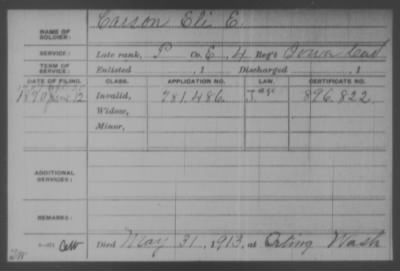 NAME OF SOLDIER: Carson Eli E.
SERVICE: Late rank, P Co. E, 4 Reg't Iowa Cav
TERM OF SERVICE: Enlisted , 1 Discharged , 1
DATE OF FILING. CLASS. APPLICATION NO. LAW. CERTIFICATE NO.
1890 12 Invalid, 781.486 J 896.822
Widow,
Minor,
ADDITIONAL SERVICES:
REMARKS:
Died May 31, 1913, at Orting Wash